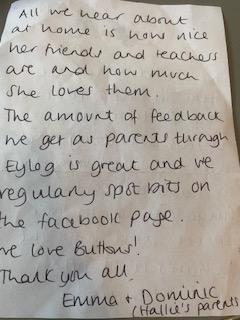 All we hear about
at home is how nice
her friends and teachers
are and how much
she loves them.
The amount of feedback
we get as parents through
Eylog is great and we
regularly spot bits on
the facebook page.
we love Buttons!
Thank you all.
Emma + Dominic
(Hallie's parents